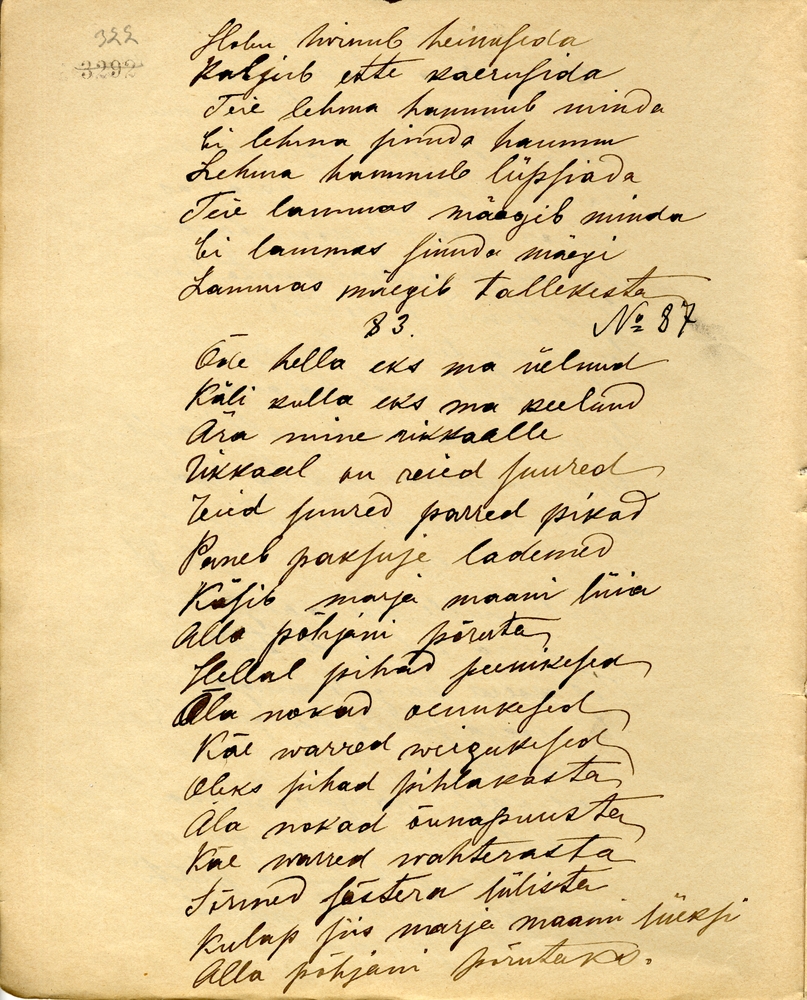 322
3292
Hobu hirnub heinasida
Kaljub ette kaerusida
Teie lehma hammub minda
Ei lehma sinuda hammu
Lehma hammub lüpsiada
Teie lammas mäegib minda
Ei lammas sinuda mäegi
Lammas mäegib tallekesta
83.
№ 87
Õde hella eks ma üelnud
Käli kulla eks ma keelnud
Ära mine rikkaalle
Rikkaal on reied suured
Reied suured parred pikad
Paneb paksuje lademed
Käsib marja maani lüia
Alla põhjani põruta
Hellal pihad peenikesed
Õla nokad oenukesed
Käe warred weigukesed
Oleks pihad pihlakasta
Õla nokad õunapuusta
Käe warred wahterasta
Sõrmed sõstera lülista
Kulap siis marja maani lüeksi
Alla põhjani põrutaks.